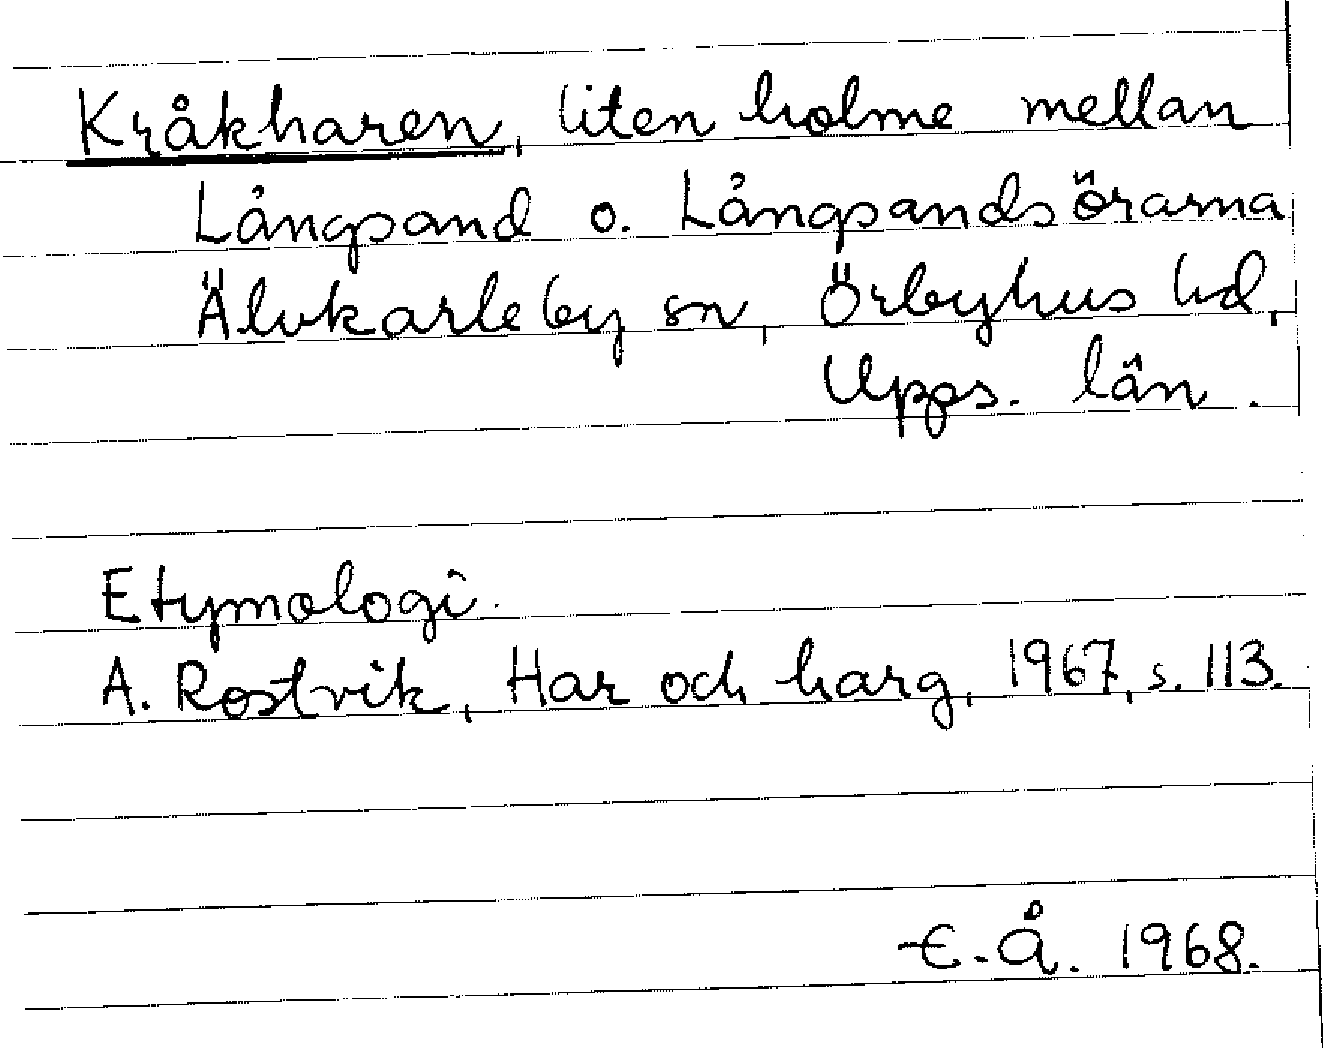 Kråkharen, liten holme mellan
Långsand o. Långsandsörarna
Älvkarleby sn, Örbyhus hd,
Upps. län.
Etymologi.
A. Rostvik, Har och harg, 1967, s. 113.
E. Å. 1968.